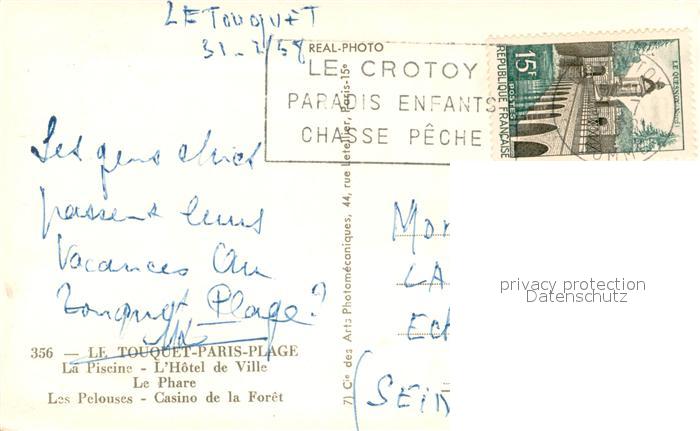 LE TOUQUET
REAL-PHOTO
LE CROTOY
PARADIS ENFANTS
CHASSE PÊCHE
15F
POSTES
REPUBLIQUE FRANÇAISE
LE QUESNOY
Les gens chics
passent leurs
Vacances Au
Touquet Plage?
356 — LE TOUQUET-PARIS-PLAGE
La Piscine - L'Hôtel de Ville
Le Phare
Les Pelouses - Casino de la Forêt
Cie des Arts Photomécaniques, 44, rue Letellier, Paris-15e
LA
(SEIN
privacy protection
Datenschutz